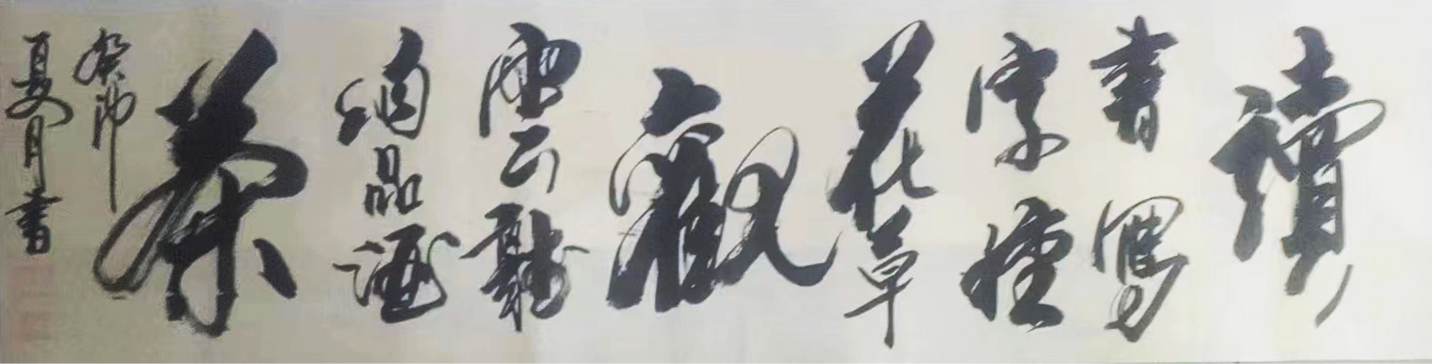 讀
書寫
字種
花草
觀
雲聽
雨品酒
茶
癸卯
夏月書